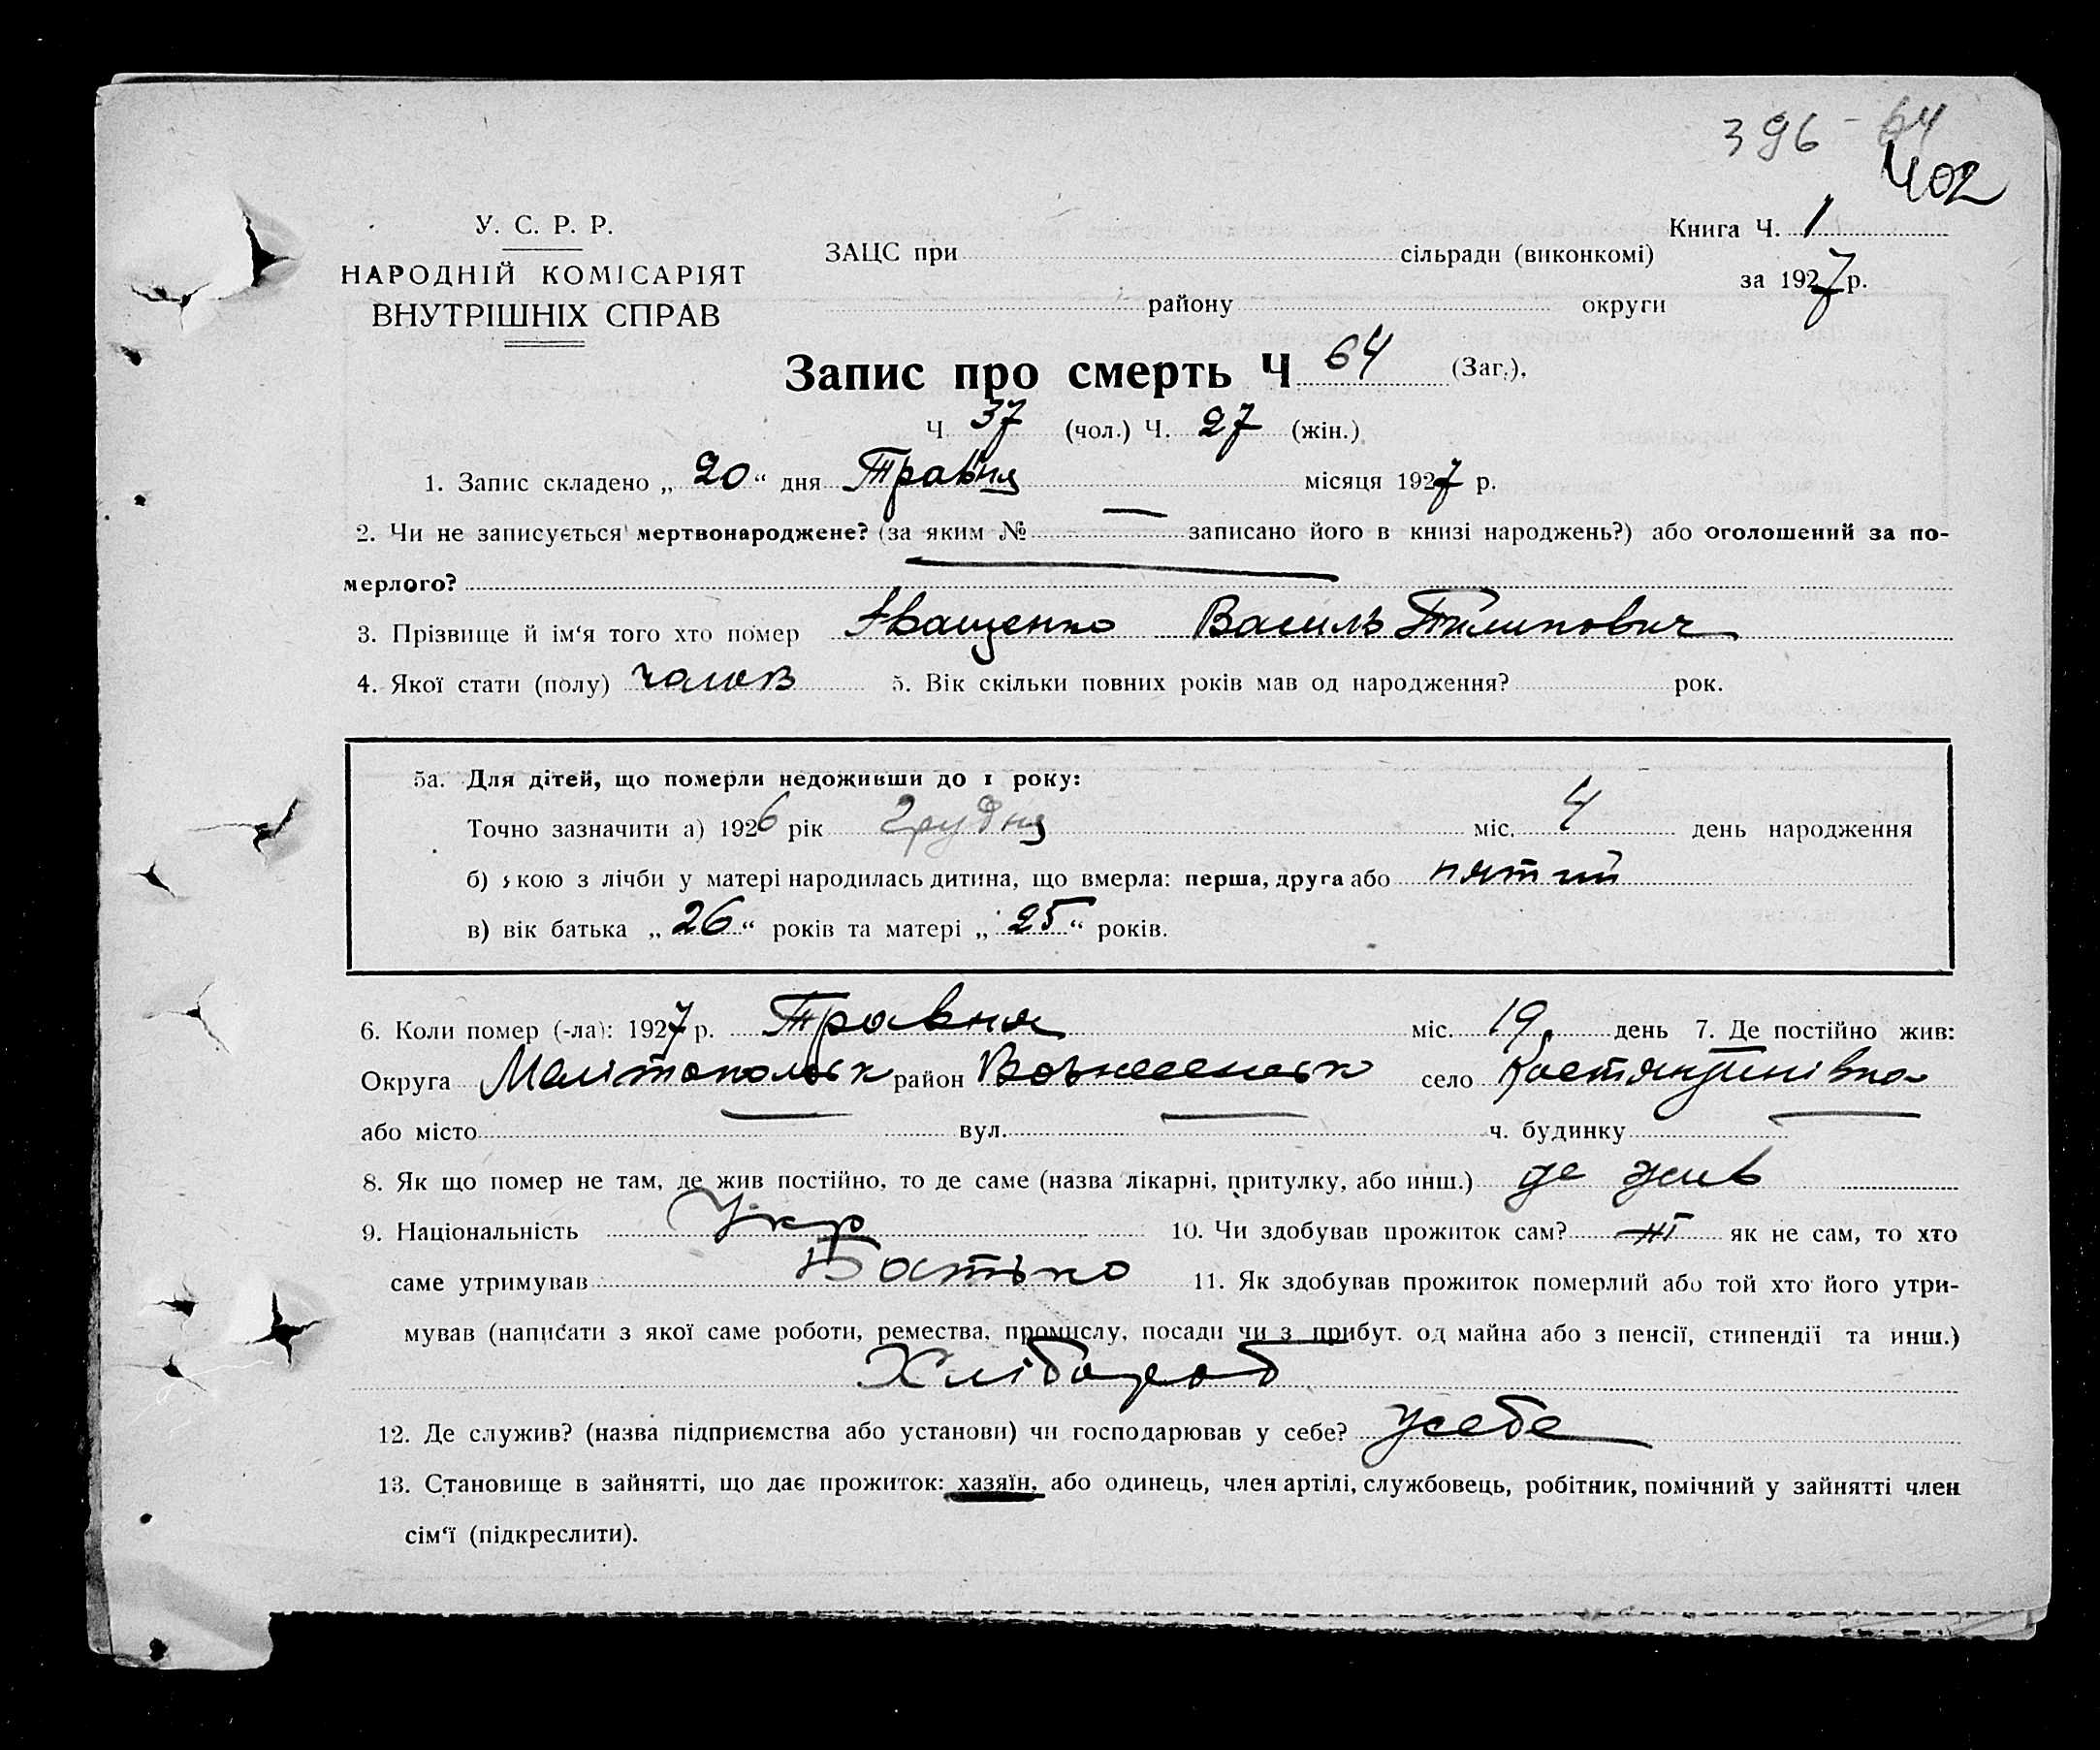 396 - 64
402
У. С. Р. Р.
НАРОДНІЙ КОМІСАРІЯТ
ВНУТРІШНІХ СПРАВ
ЗАЦС при сільради (виконкомі)
району округи
Книга Ч. 1
за 1927 р.
Запис про смерть Ч 64 (Заг.).
Ч 37 (чол.) Ч. 27 (жін.)
1. Запис складено „ 20 “ дня Травня місяця 1927 р.
2. Чи не записується мертвонароджене? (за яким № — записано його в книзі народжень?) або оголошений за по-
мерлого?
3. Прізвище й ім‘я того хто помер Іващенко Василь Пилипович
4. Якої стати (полу) чолов 5. Вік скільки повних років мав од народження? рок.
5а. Для дітей, що померли недоживши до 1 року:
Точно зазначити а) 1926 рік Грудня міс. 4 день народження
б) якою з лічби у матері народилась дитина, що вмерла: перша, друга або пятий
в) вік батька „ 26 “ років та матері „ 25 “ років.
6. Коли помер (-ла): 1927 р. Травня міс. 19 день 7. Де постійно жив:
Округа Мелітопольск район Вознесенськ село Костянтинівка
або місто — вул. — ч. будинку —
8. Як що помер не там, де жив постійно, то де саме (назва лікарні, притулку, або инш.) де жив
9. Національність Укр 10. Чи здобував прожиток сам? ні як не сам, то хто
саме утримував Батько 11. Як здобував прожиток померлий або той хто його утри-
мував (написати з якої саме роботи, ремества, промислу, посади чи з прибут. од майна або з пенсії, стипендії та инш.)
Хлібороб
12. Де служив? (назва підприємства або установи) чи господарював у себе? усебе
13. Становище в зайнятті, що дає прожиток: хазяїн, або одинець, член артілі, службовець, робітник, помічний у зайнятті член
сім‘ї (підкреслити).